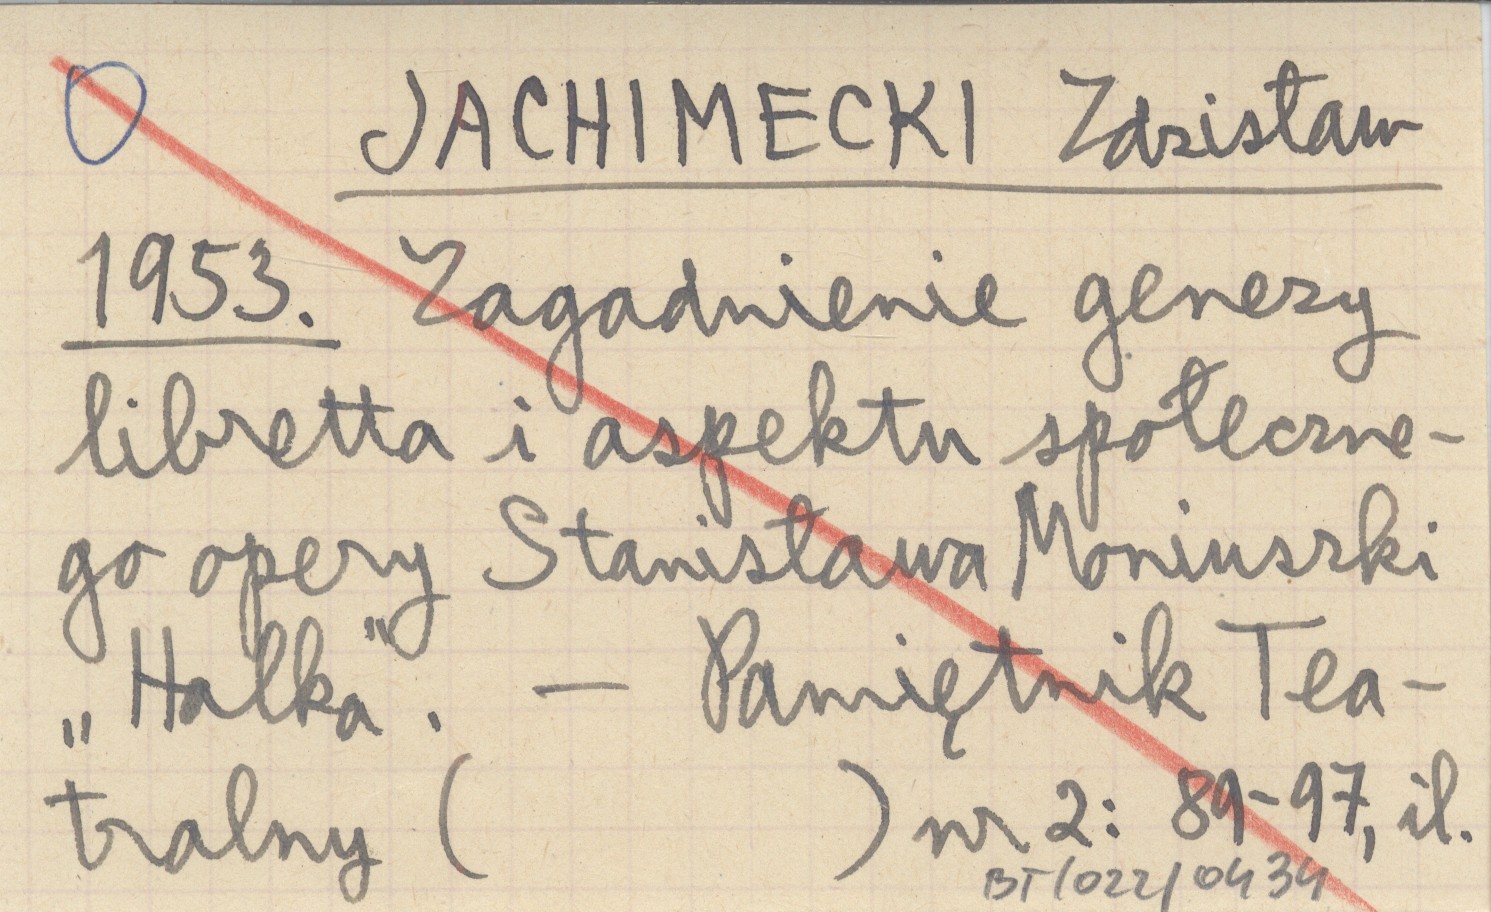 JACHIMECKI Zdzisław
1953. Zagadnienie genezy
libretta i aspektu społeczne-
go opery Stanisława Moniuszki
„Halka”. — Pamiętnik Tea-
tralny ( ) nr 2: 89-97, il.
BT/022/0434